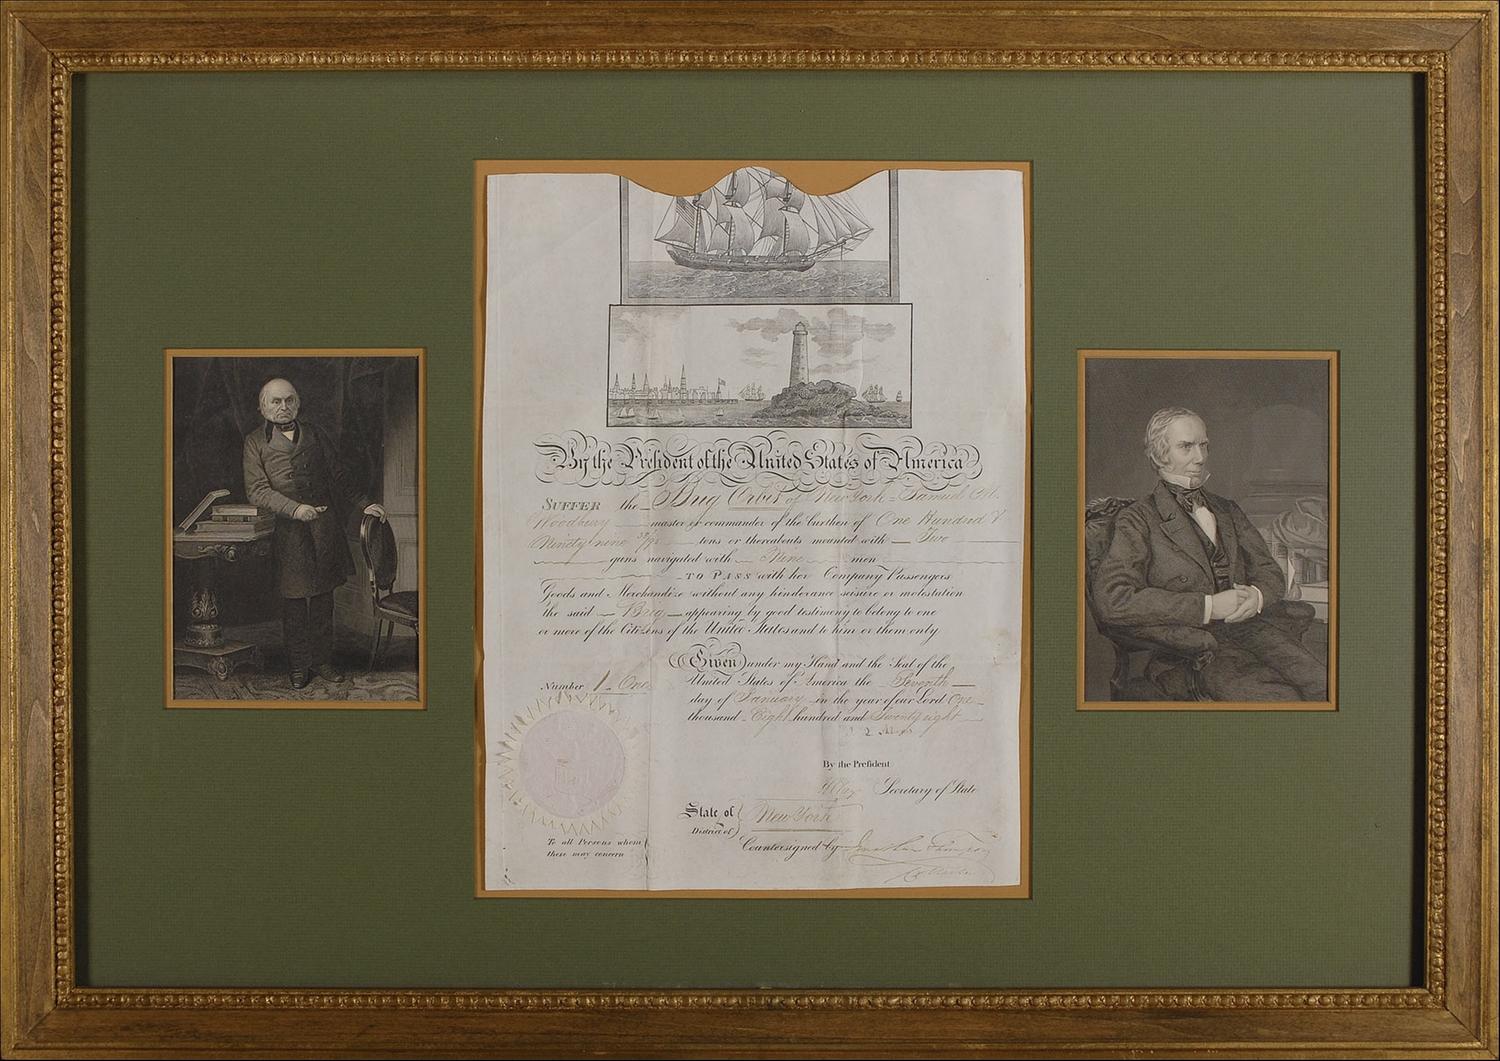 By the President of the United States of America
SUFFER the Brig Orbit of New York Samuel
Woodbury master or commander of the burthen of One Hundred &
Ninety nine tons or thereabouts mounted with Two
guns navigated with Nine men
TO PASS with her Company Passengers
Goods and Merchandize without any hinderance seisure or molestation
the said Brig appearing by good testimony to belong to one
or more of the Citizens of the United States and to him or them only
Given under my Hand and the Seal of the
United States of America the Seventh
day of January in the year of our Lord One
thousand Eight hundred and Twenty eight
Number 1. One
By the President
H Clay Secretary of State
State of
District of
New York
Countersigned by Jonathan Thompson
To all Persons whom
these may concern